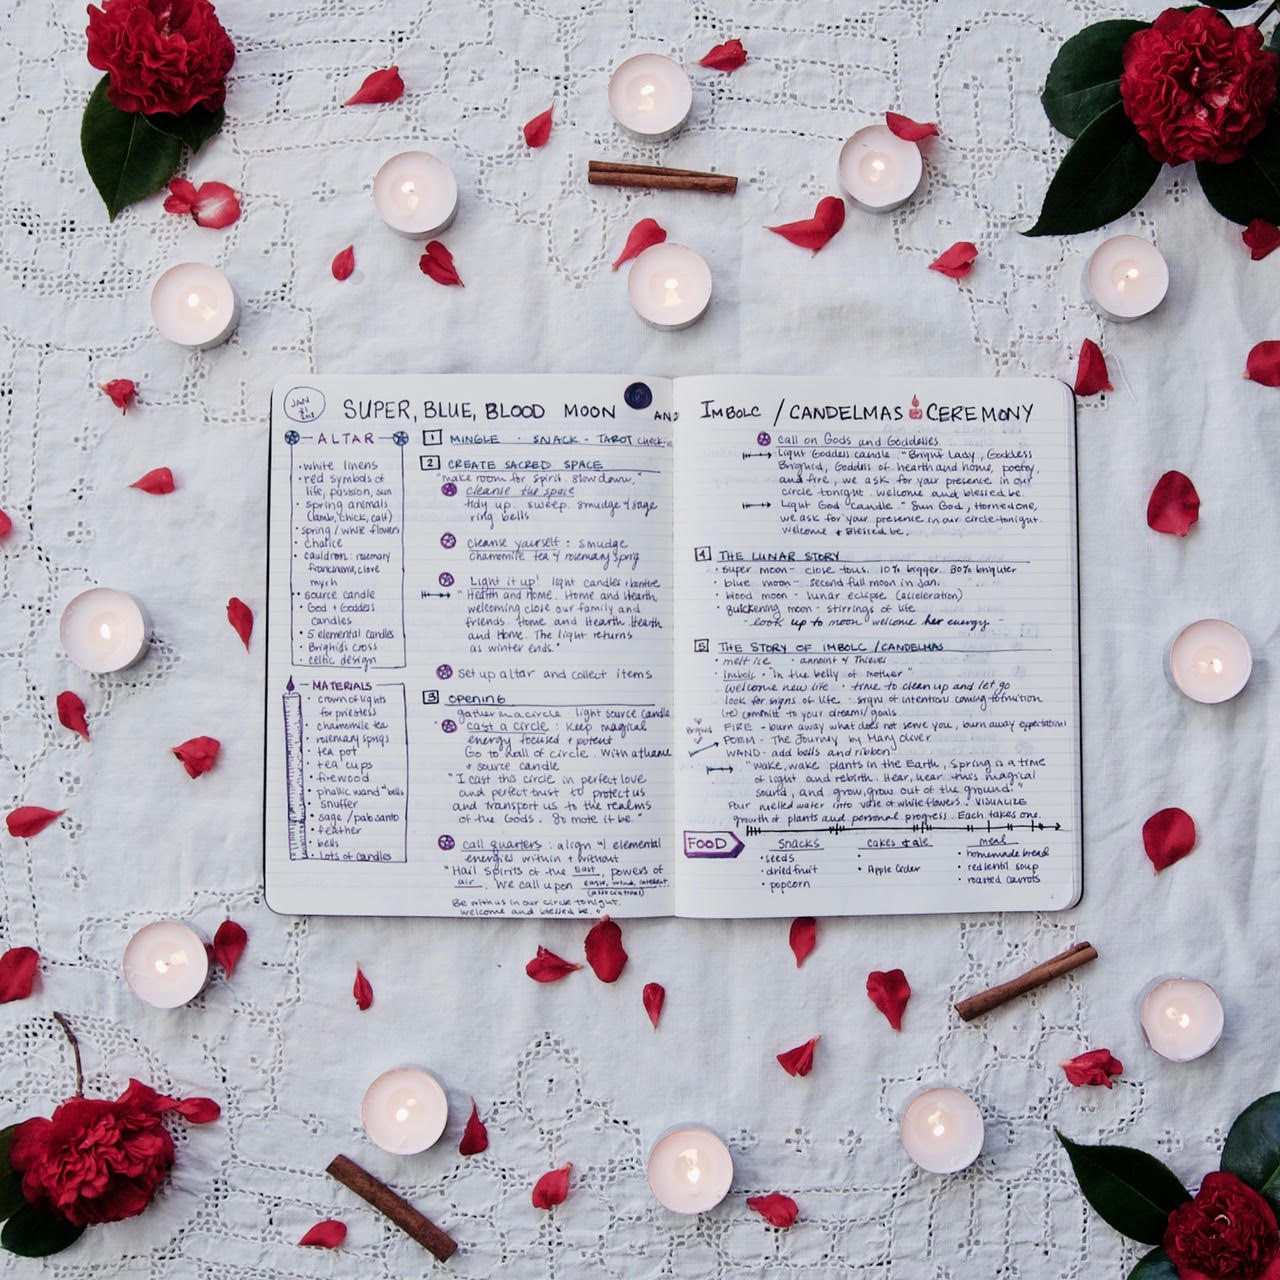 JAN
31
2018
SUPER, BLUE, BLOOD MOON AND
ALTAR
• white linens
• red symbols of
life, passion, sun
• spring animals
(lamb, chick, calf)
• spring / white flowers
• chalice
• cauldron: rosemary
frankincense, clove
myrh
• source candle
• God + Goddess
candles
• 5 elemental candles
• Brighids cross
• celtic design
MATERIALS
• crown of lights
for priestess
• chamomile tea
• rosemary sprigs
• tea pot
• tea cups
• firewood
• phallic wand w/ bells
• snuffer
• sage / palo santo
• feather
• bells
• Lots of candles
1 MINGLE · SNACK · TAROT check-in
2 CREATE SACRED SPACE
"make room for spirit. slow down."
cleanse the space
tidy up. sweep. smudge w/ sage
ring bells
cleanse yourself: smudge
chamomile tea w/ rosemary sprig
Light it up! light candles + bonfire
"Health and Home. Home and Hearth
welcoming close our family and
friends. Home and Hearth. Hearth
and Home. The light returns
as winter ends."
Set up altar and collect items
3 OPENING
gather in a circle light source candle
cast a circle: Keep magical
energy focused + potent
Go to wall of circle. With athame
+ source candle
"I cast this circle in perfect love
and perfect trust to protect us
and transport us to the realms
of the Gods. So mote it be."
call quarters: align w/ elemental
energies within + without
"Hail Spirits of the East, powers of
air. We call upon eagle, wind, intellect
(associations)
Be with us in our circle tonight.
welcome and blessed be."
IMBOLC / CANDELMAS CEREMONY
call on Gods and Goddesses
Light Goddess candle "Bright Lady, Goddess
Brighid, Goddess of hearth and home, poetry,
and fire, we ask for your presence in our
circle tonight. welcome and blessed be.
Light God candle "Sun God, Horned one,
we ask for your presence in our circle tonight.
Welcome + Blessed be.
4 THE LUNAR STORY
• super moon - close to us. 10% bigger. 30% brighter
• blue moon - second full moon in Jan.
• blood moon - lunar eclipse (acceleration)
• quickening moon - stirrings of life
- look up to moon, welcome her energy -
5 THE STORY OF IMBOLC / CANDELMAS
• melt ice • annoint w/ Thieves
• Imbolc - "in the belly of mother"
welcome new life • time to clean up and let go
look for signs of life - signs of intentions coming to fruition
(re) commit to your dreams/goals
Brighid
FIRE - burn away what does not serve you, burn away expectations
POEM - The Journey by Mary Oliver
WAND - add bells and ribbon
"Wake, wake plants in the Earth, Spring is a time
of light and rebirth. Hear, hear this magical
sound, and grow, grow out of the ground."
Pour melted water into vase of white flowers. VISUALIZE
growth of plants and personal progress. Each takes one.
FOOD
snacks
• seeds
• dried fruit
• popcorn
cakes + ale
• Apple Cider
meal
• homemade bread
• red lentil soup
• roasted carrots